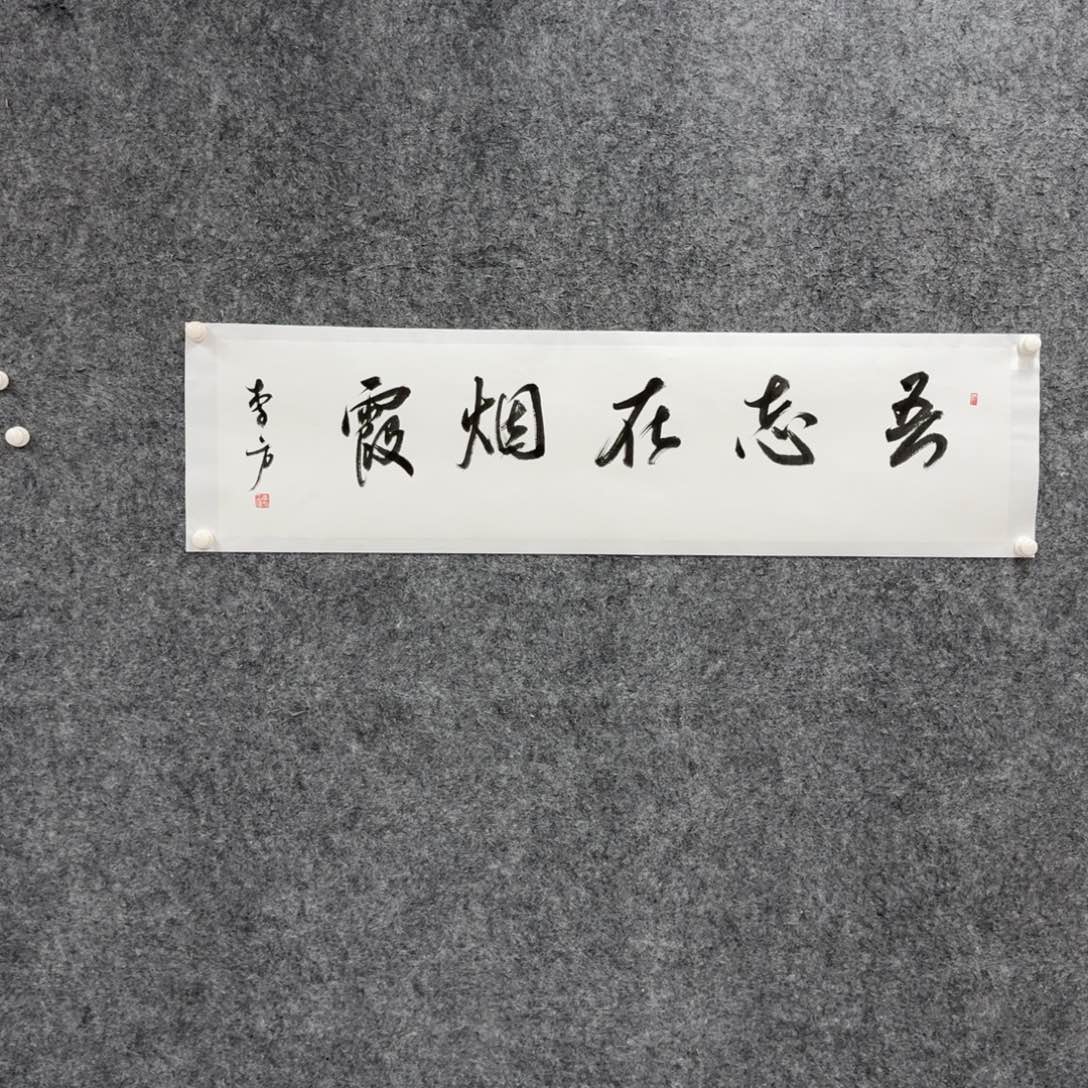 吾志在烟霞
李方